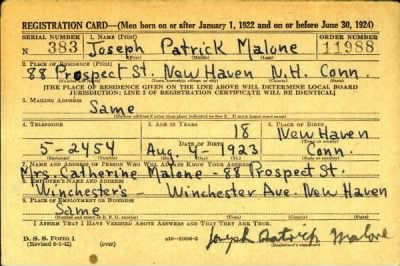 REGISTRATION CARD—(Men born on or after January 1, 1922 and on or before June 30, 1924)
SERIAL NUMBER 1. NAME (Print) ORDER NUMBER
N 383 Joseph Patrick Malone 11988
(First) (Middle) (Last)
2. PLACE OF RESIDENCE (Print)
88 Prospect St. New Haven N.H. Conn.
[THE PLACE OF RESIDENCE GIVEN ON THE LINE ABOVE WILL DETERMINE LOCAL BOARD
JURISDICTION; LINE 2 OF REGISTRATION CERTIFICATE WILL BE IDENTICAL]
3. MAILING ADDRESS
Same
4. TELEPHONE 5. AGE IN YEARS 6. PLACE OF BIRTH
18 New Haven
DATE OF BIRTH
5-2454 Aug. 4-1923 Conn.
7. NAME AND ADDRESS OF PERSON WHO WILL ALWAYS KNOW YOUR ADDRESS
Mrs. Catherine Malone - 88 Prospect St.
8. EMPLOYER'S NAME AND ADDRESS
Winchester's - Winchester Ave. New Haven
9. PLACE OF EMPLOYMENT OR BUSINESS
Same
I AFFIRM THAT I HAVE VERIFIED ABOVE ANSWERS AND THAT THEY ARE TRUE.
D. S. S. Form 1
(Revised 6-1-42) (over)
Joseph Patrick Malone